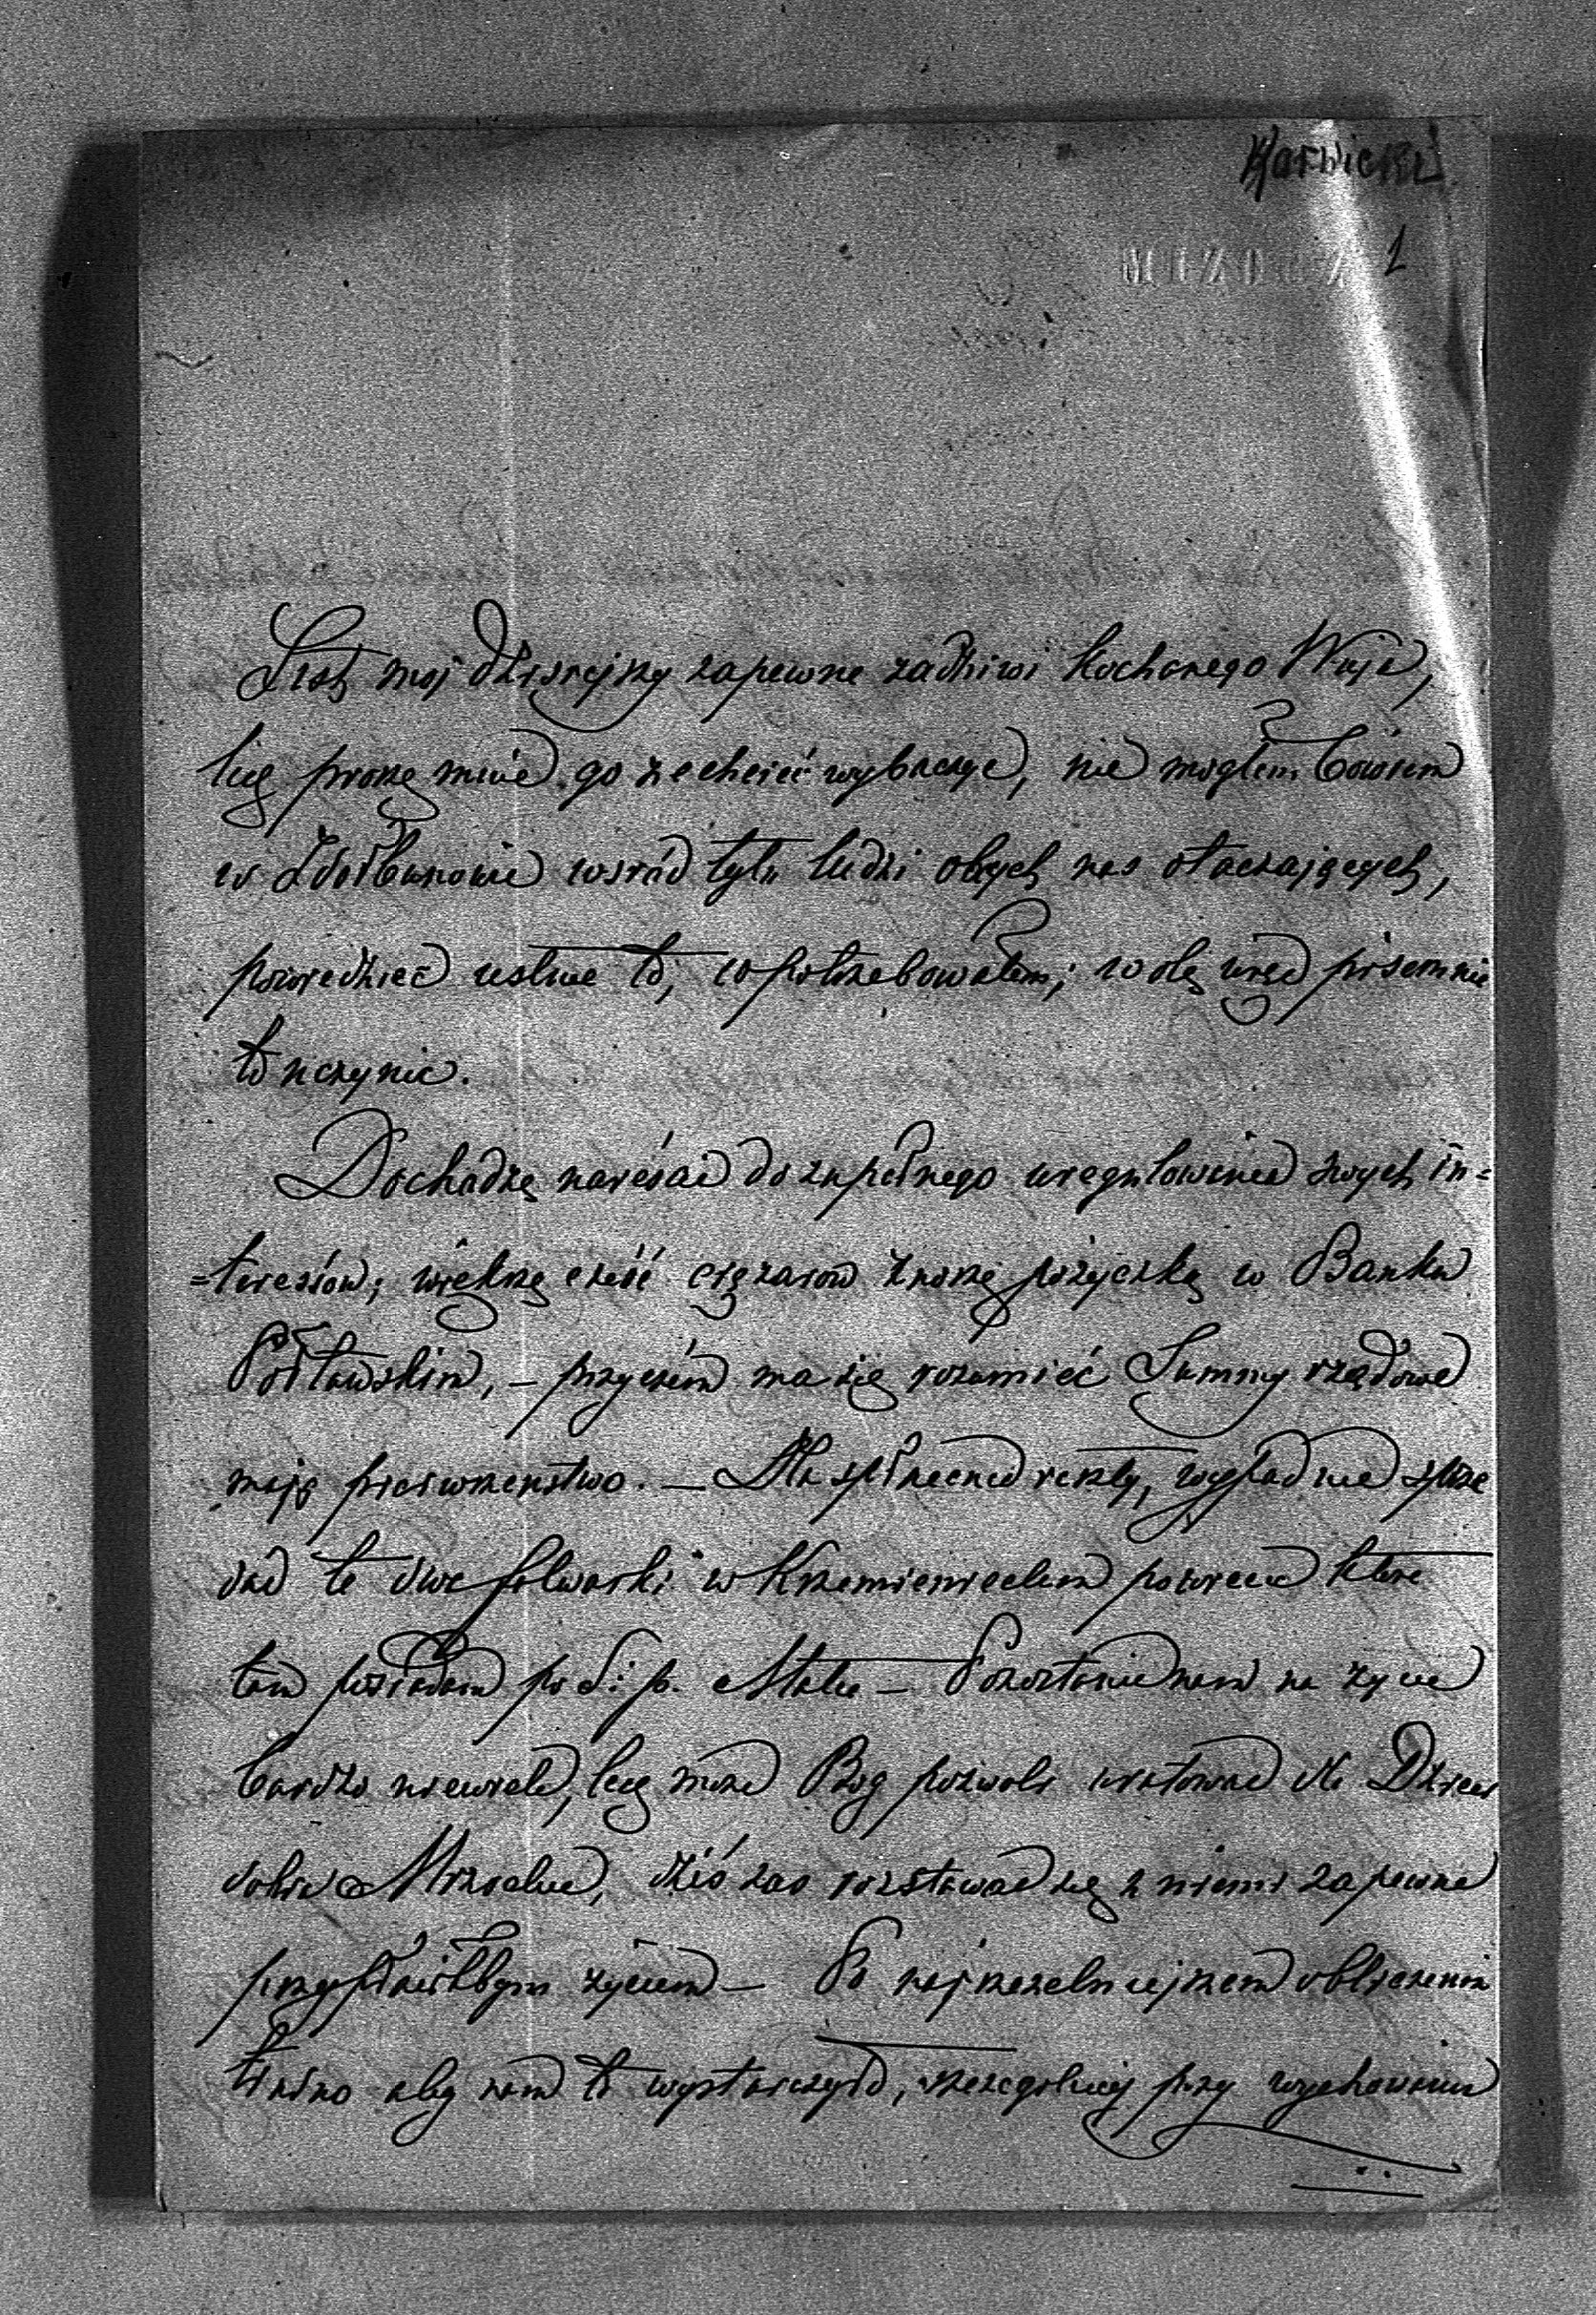 Karwicki
1
MIZOCZ
List moj dzisiejszy zapewne zadziwi kochanego Wuja,
lecz proszę mnie go zechcieć wybaczyć, nie mogłem bowiem
w Zdołbunowie wsród tylu ludzi obcych nas otaczających,
powiedzieć ustnie to, co potrzebowałem; wolę więc pisemnie
to uczynić.
Dochodzę nareście do zupełnego uregulowania swych in=
=teresów; większą cześć ciężarow znoszę pożyczką w Banku
Połtawskim, – przyczém ma się rozumieć Summy rządowe
mają pierwszenstwo. – Dla spłacenia reszty, wypadnie sprze
dać te dwa folwarki w Krzemienieckim powiecie które
tam posiadam po ś: p. Matce – Pozostanie nam na życie
bardzo niewiele, lecz może Bog pozwoli uratować dla Dzieci
dobra Mizockie, dziś zas rozstawać się z niemi zapewne
przypłaciłbym życiem – Po najrzetelniejszem obliczeniu
trudno aby nam to wystarczyło, szczególniej przy wychowaniu